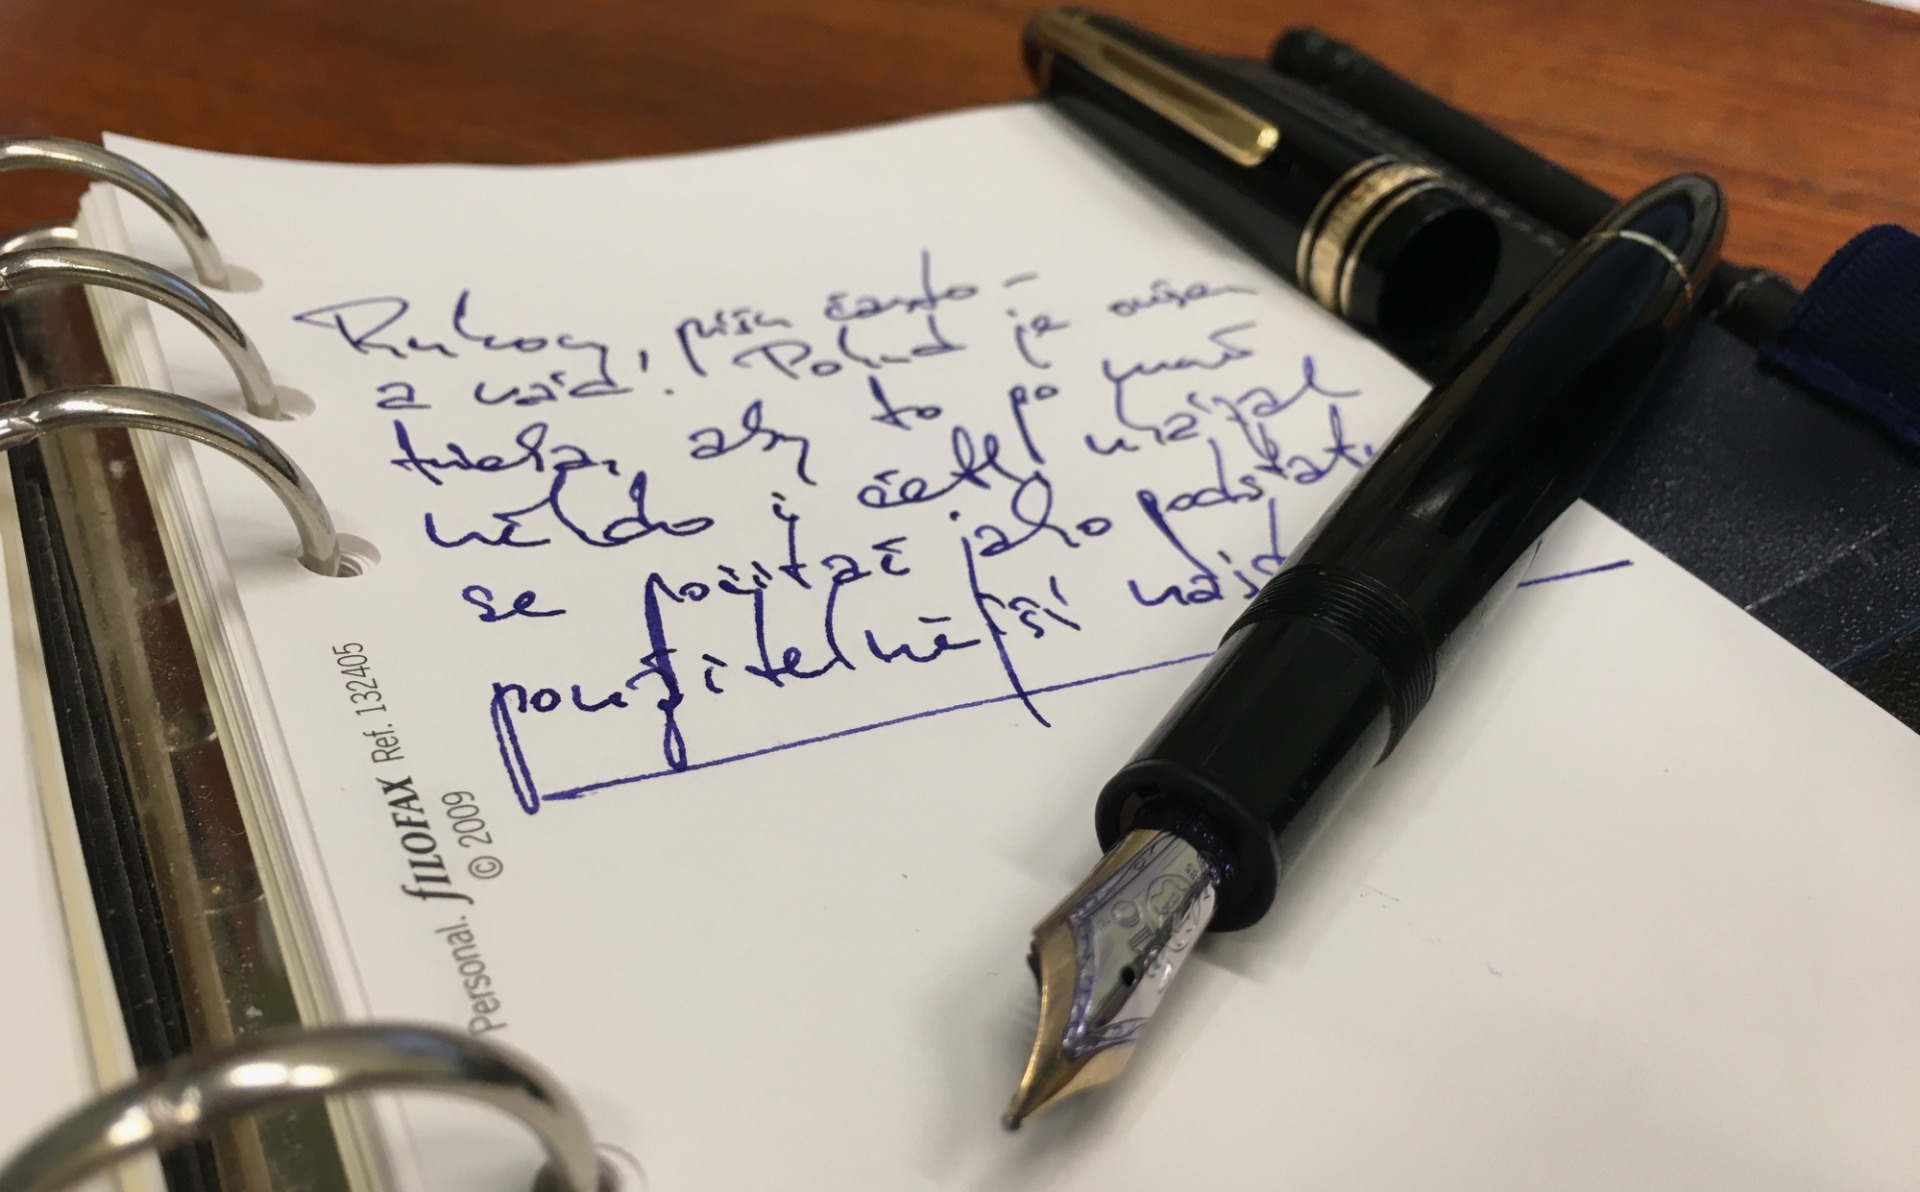 Rukou, píšu často -
a rád! Pokud je ovšem
třeba, aby to po mně
někdo i četl, ukázal
se počítač jako podstatně
použitelnější nást
Personal. FILOFAX Ref. 132405
© 2009